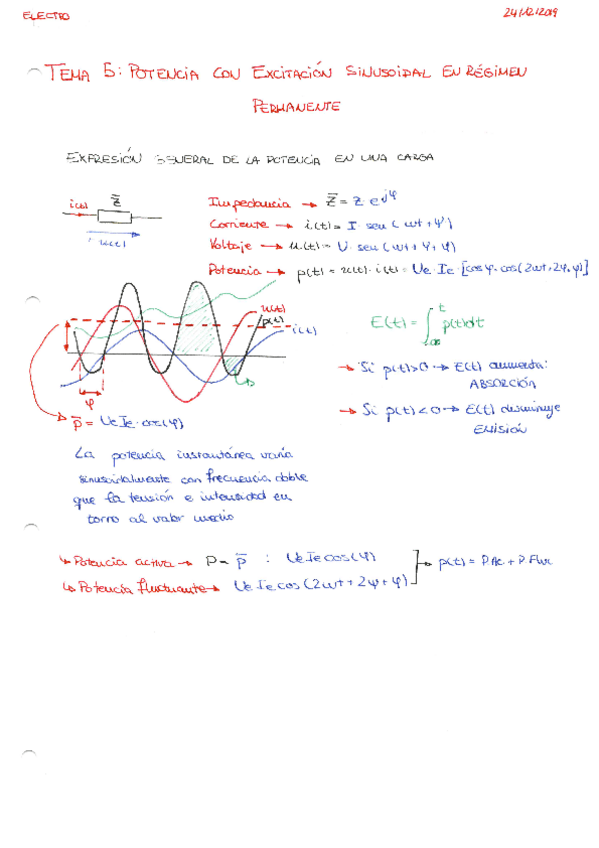 ELECTRO
24/12/2019
TEMA 5: POTENCIA CON EXCITACIÓN SINUSOIDAL EN RÉGIMEN
PERMANENTE
EXPRESIÓN GENERAL DE LA POTENCIA EN UNA CARGA
i(t) Z̄
u(t)
Impedancia → Z̄ = Z · e^jφ
Corriente → i(t) = I sen (ωt + Ψ)
Voltaje → u(t) = U sen (ωt + Ψ + φ)
Potencia → p(t) = u(t) · i(t) = Ue · Ie · [cos φ - cos(2ωt + 2Ψ + φ)]
u(t)
p(t)
i(t)
φ
E(t) = ∫ p(t)dt
→ Si p(t)>0 → E(t) aumenta:
ABSORCIÓN
→ Si p(t)<0 → E(t) disminuye
EMISIÓN
p̄ = Ue Ie · cos(φ)
La potencia instantánea varía
sinusoidalmente con frecuencia doble
que la tensión e intensidad en
torno al valor medio
↳ Potencia activa → P = p̄ : Ue Ie cos(φ)
↳ Potencia fluctuante → Ue Ie cos (2ωt + 2Ψ + φ)
→ p(t) = P.Ac + P.Fluc